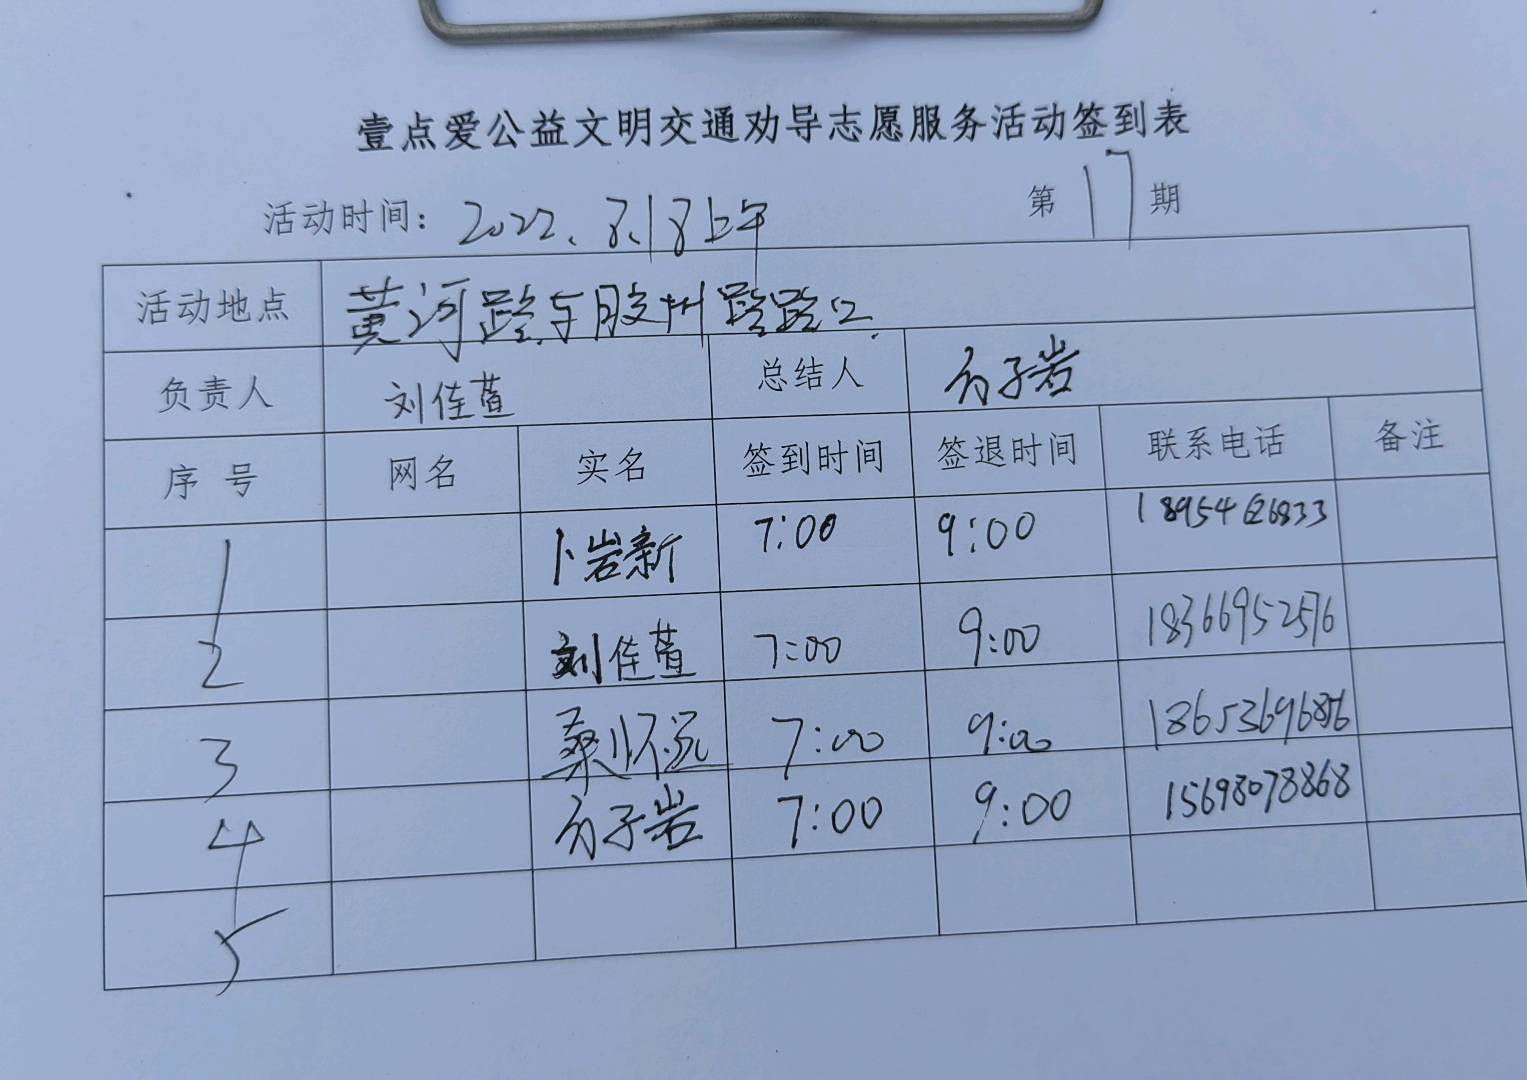 壹点爱公益文明交通劝导志愿服务活动签到表
活动时间: 2022.8.18上午 第17期
活动地点 黄河路与胶州路路口
负责人 刘佳萱 总结人 方子岩
序号 网名 实名 签到时间 签退时间 联系电话 备注
1 卜岩新 7:00 9:00 18954626833
2 刘佳萱 7:00 9:00 18366952576
3 桑怀远 7:00 9:00 18653696856
4 方子岩 7:00 9:00 15698078868
5